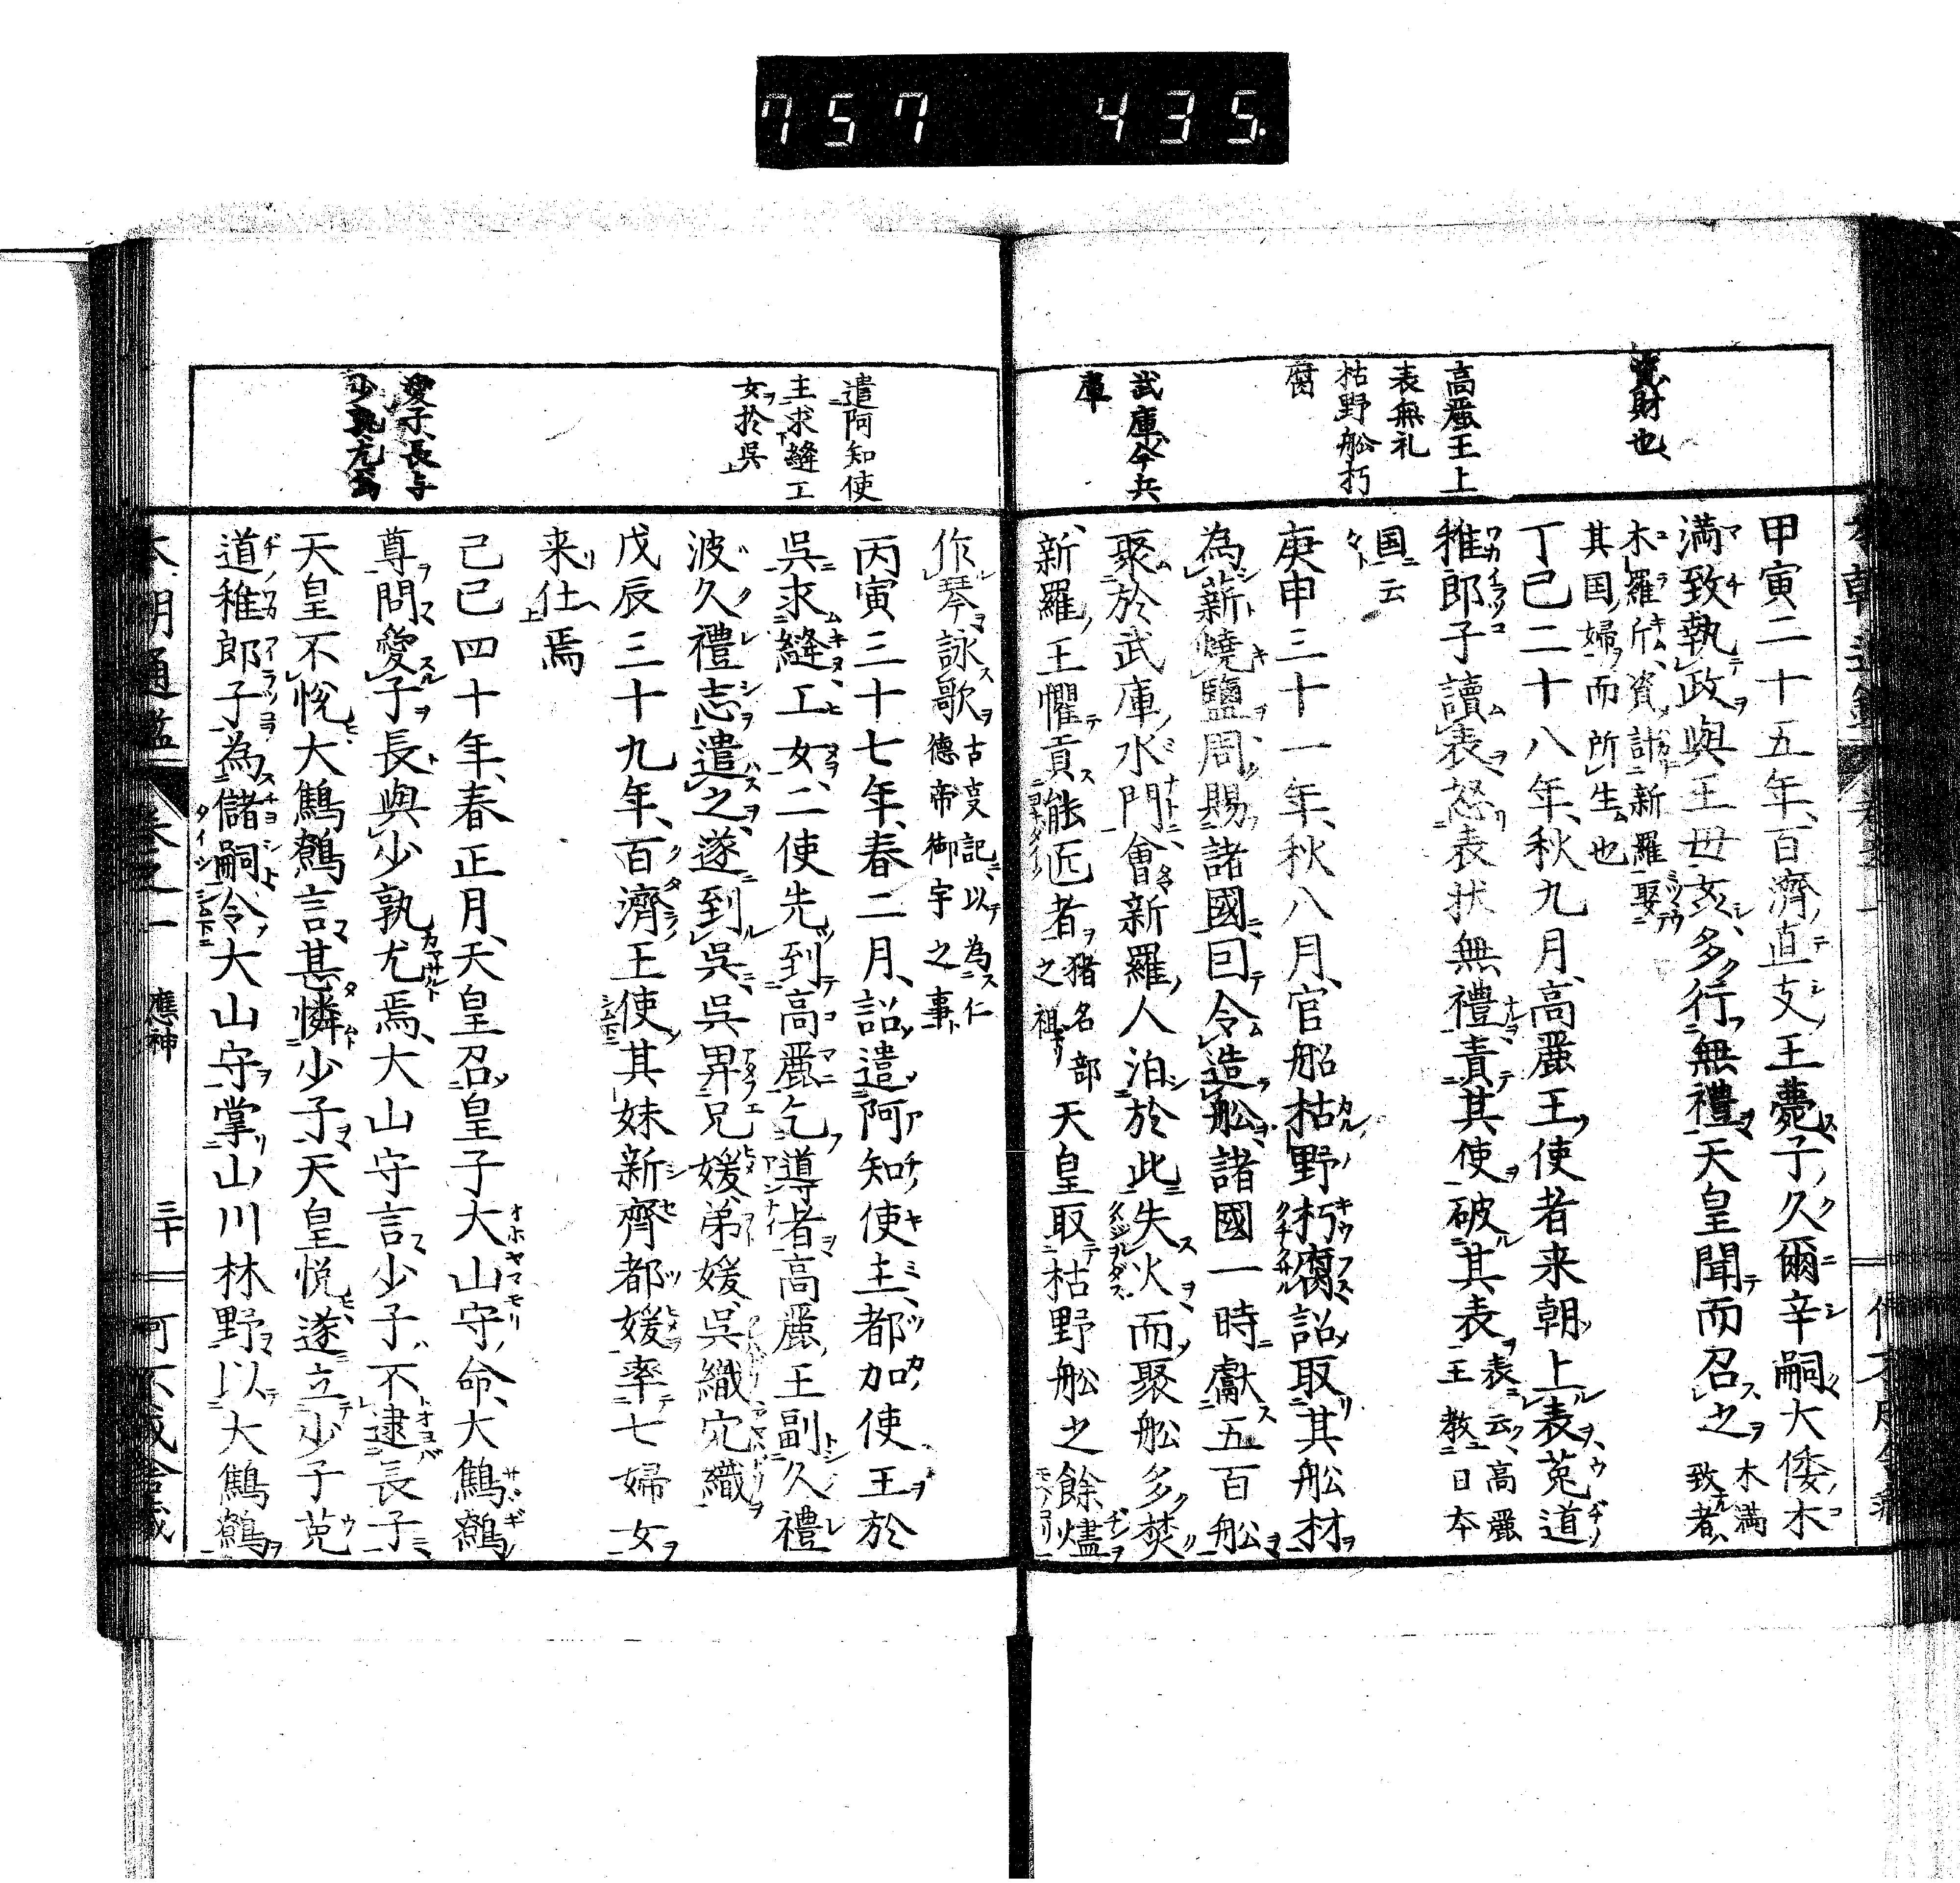 757 435
貲財也
高麗王上
表無礼
枯野舩朽
腐
武庫今兵
庫
甲寅二十五年、百濟直支王薨子久爾辛嗣大倭木
満致執政與王母姦多行無禮天皇聞而召之木満致者、
木羅斤資討新羅娶
其国婦而所生也
丁巳二十八年、秋九月、高麗王使者来朝上表菟道
稚郎子讀表怒表状無禮責其使破其表表云高麗王教日本
国云
庚申三十一年、秋八月、官船枯野朽腐詔取其舩材
為薪燒鹽周賜諸國回令造舩諸國一時獻五百舩
聚於武庫水門會新羅人泊於此失火而聚舩多焚
新羅王懼貢能匠者猪名部之祖天皇取枯野舩之餘燼
遣阿知使
主求縫工
女於呉
愛子長与
少孰尤焉
作琴詠歌古叓記以為仁德帝御宇之事
丙寅三十七年、春二月、詔遣阿知使主、都加使王於
呉求縫工女、二使先到高麗乞導者高麗王副久禮
波久禮志遣之遂到呉、呉畀兄媛、弟媛、呉織穴織
戊辰三十九年、百濟王使其妹新齊都媛率七婦女
来仕焉
己巳四十年、春正月、天皇召皇子大山守命、大鷦鷯
尊問愛子長與少孰尤焉、大山守言少子不逮長子
天皇不悅大鷦鷯言甚憐少子天皇悦遂立少子菟
道稚郎子為儲嗣令大山守掌山川林野以大鷦鷯
卷之一 應神 三十